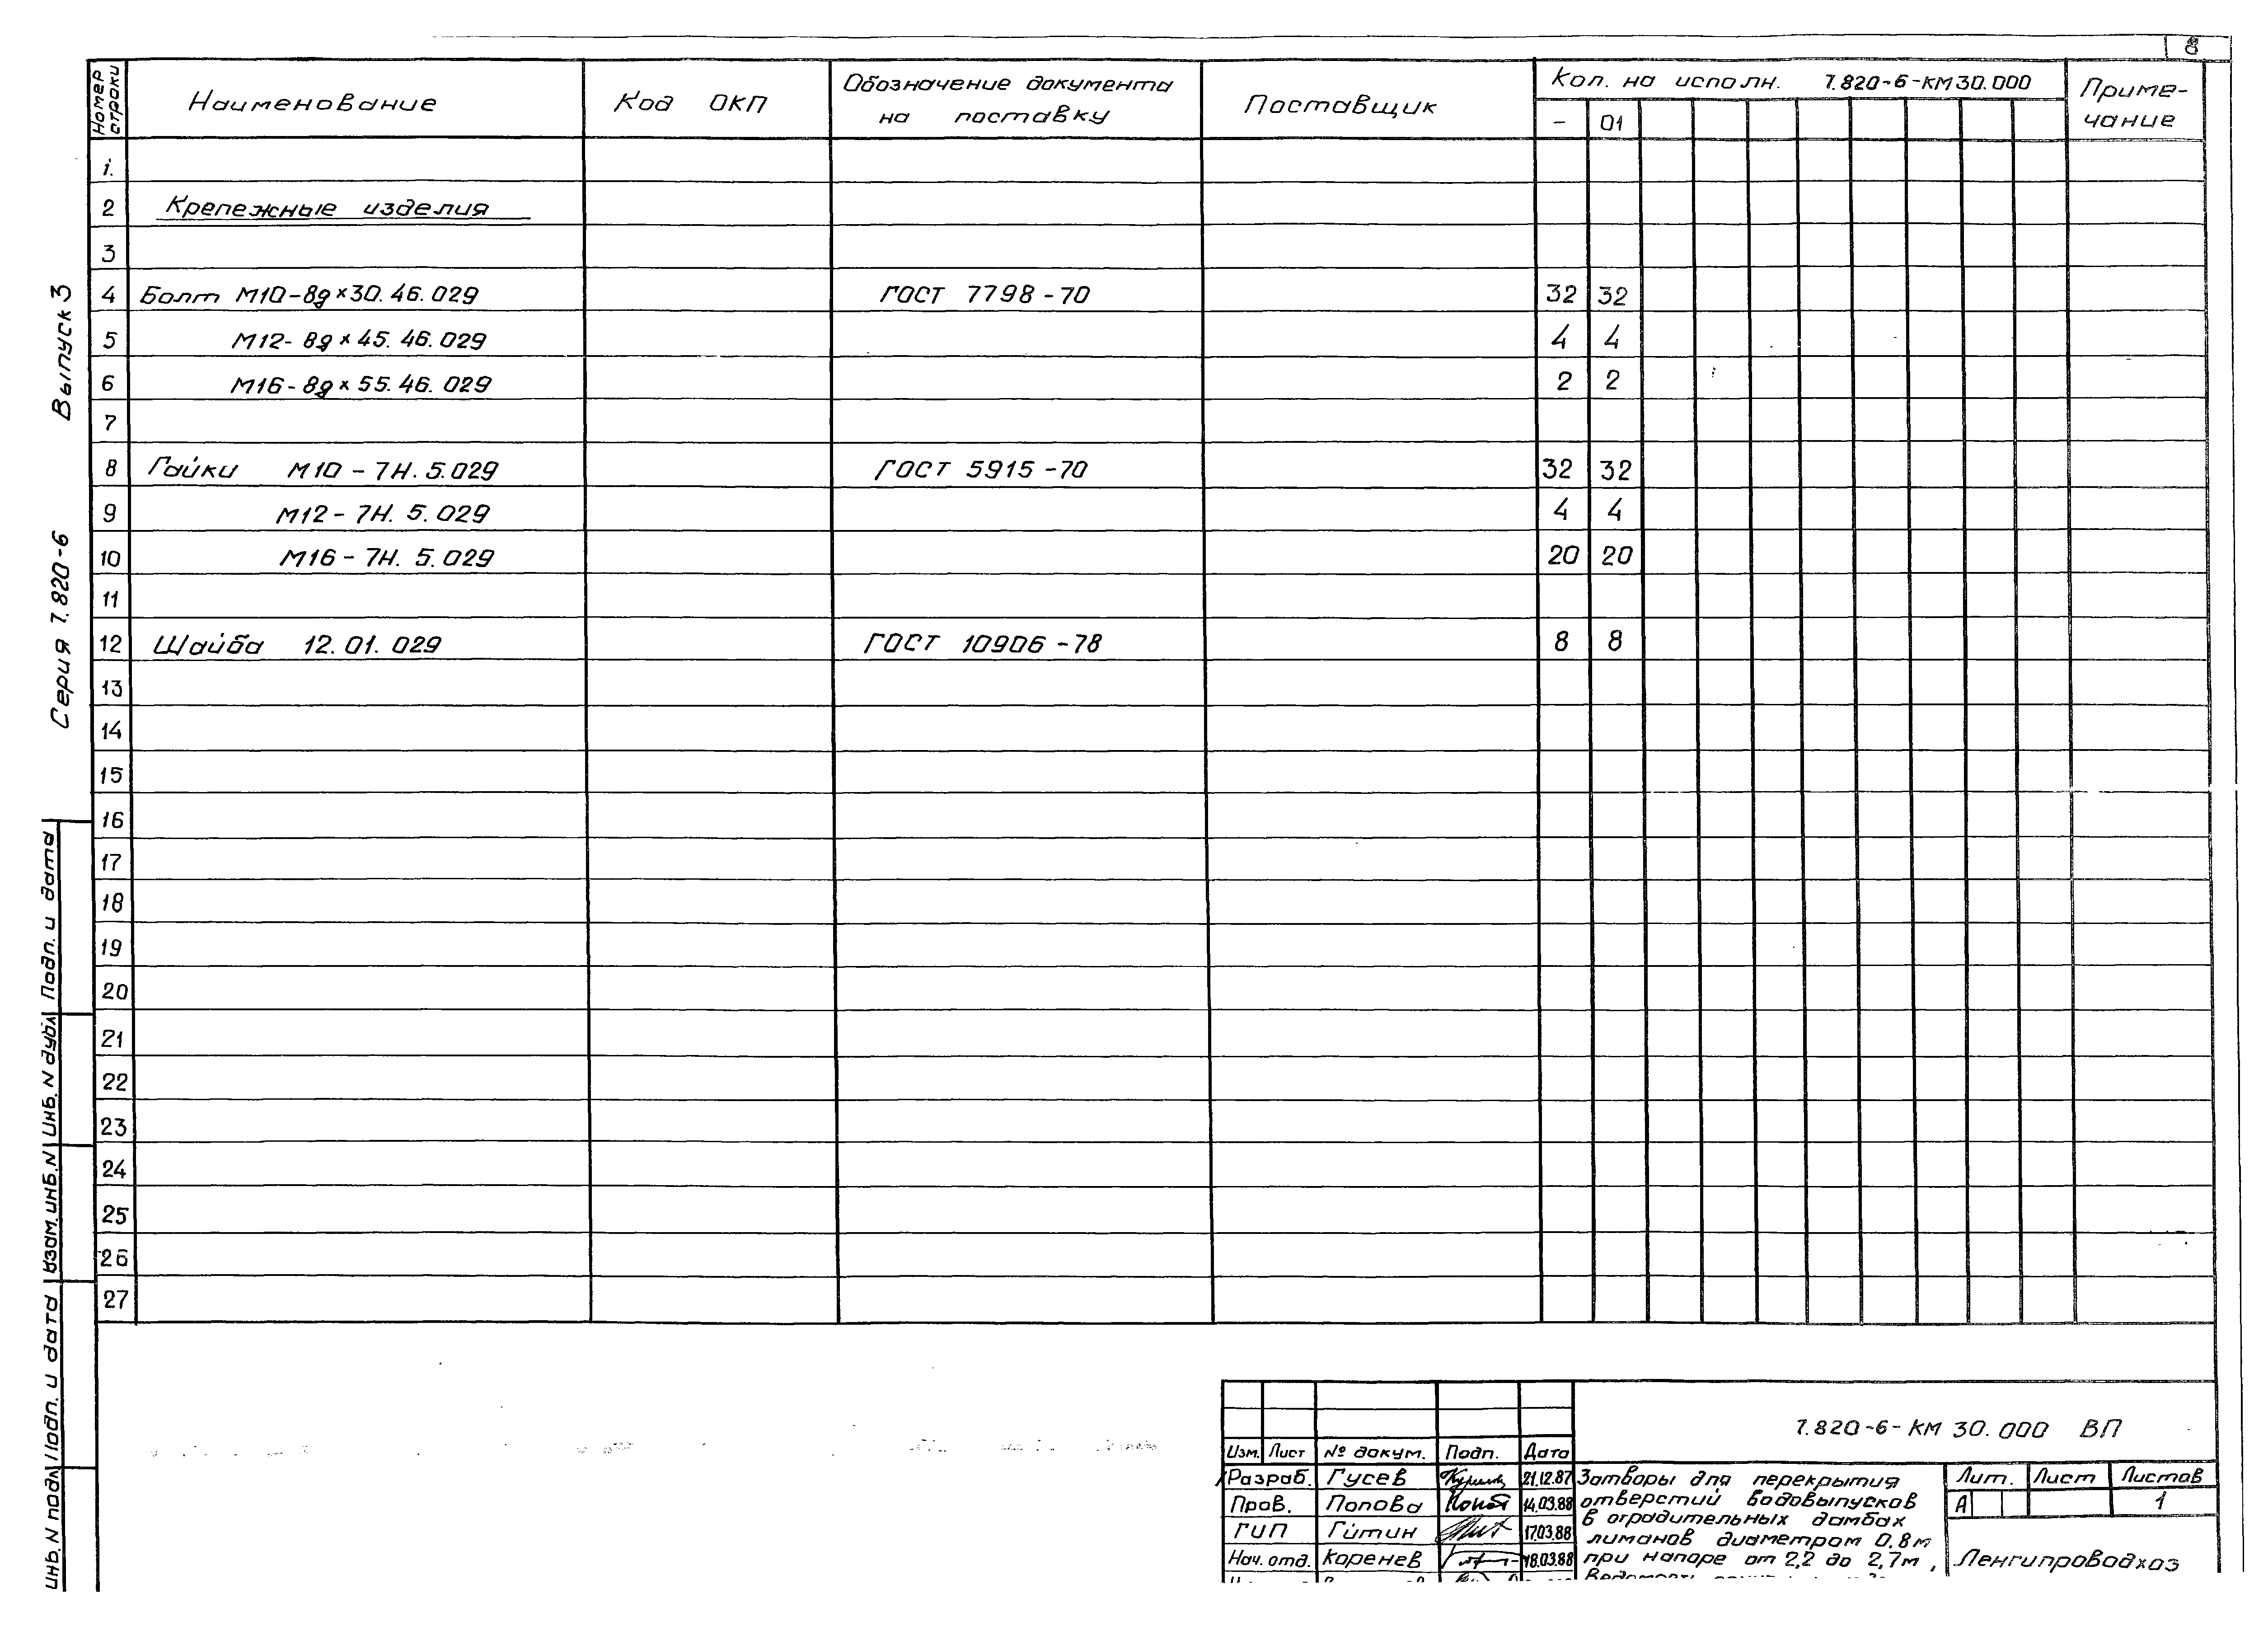 80
Номер строки
Наименование
Код ОКП
Обозначение документа
на поставку
Поставщик
Кол. на исполн. 7.820-6-КМ30.000
- 01
Приме-
чание
1.
2 Крепежные изделия
3
4 Болт М10-8g×30.46.029 ГОСТ 7798-70 32 32
5 М12-8g×45.46.029 4 4
6 М16-8g×55.46.029 2 2
7
8 Гайки М10-7Н.5.029 ГОСТ 5915-70 32 32
9 М12-7Н.5.029 4 4
10 М16-7Н.5.029 20 20
11
12 Шайба 12.01.029 ГОСТ 10906-78 8 8
13
14
15
16
17
18
19
20
21
22
23
24
25
26
27
Серия 7.820-6 Выпуск 3
Подп. и дата
Инв. N дубл
Взам. инв. N
Подп. и дата
Инв. N подл
7.820-6-КМ 30.000 ВП
Изм. Лист № докум. Подп. Дата
Разраб. Гусев 21.12.87
Пров. Попова 14.03.88
ГИП Гитин 17.03.88
Нач. отд. Коренев 18.03.88
Затворы для перекрытия
отверстий водовыпусков
в оградительных дамбах
лиманов диаметром 0,8м
при напоре от 2,2 до 2,7м,
Лит. Лист Листов
А 1
Ленгипроводхоз